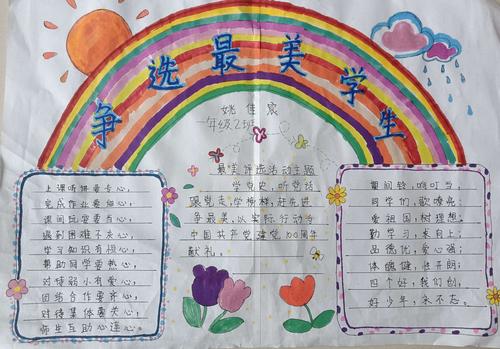 争选最美学生
姚佳宸
一年级2班
上课听讲要专心,
完成作业要细心,
课间玩耍要当心,
遇到困难不灰心,
学习知识有恒心,
帮助同学要热心,
对待弱小有爱心,
团结合作要齐心,
对待集体要关心,
师生互助心连心。
最美评选活动主题
学党史,听党话,
跟党走,学榜样,赶先进
争最美,以实际行动为
中国共产党建党100周年
献礼。
同学们,歌嘹亮;
爱祖国,树理想。
勤学习,求自上;
品德优,爱心强;
体魄健,性开朗;
四个好,我们创,
好少年,永不忘。